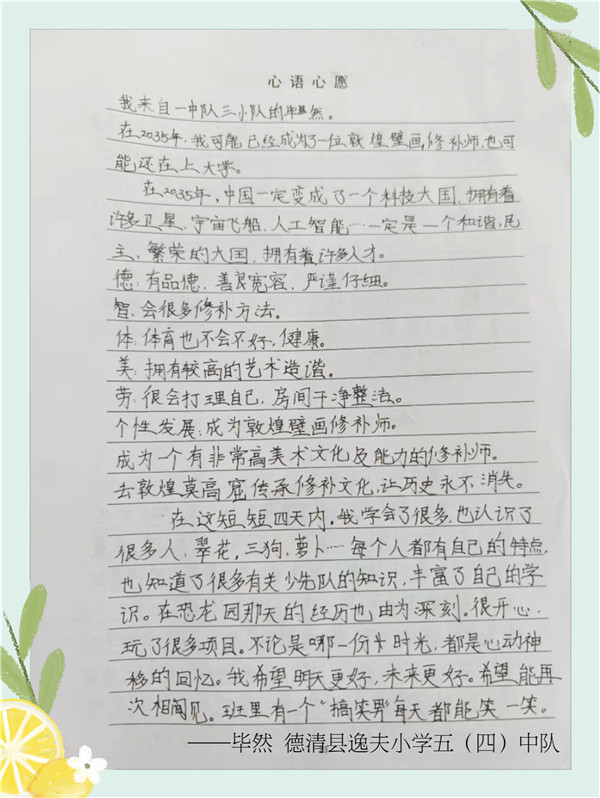 心语心愿
我来自一中队三小队的毕然。
在2035年,我可能已经成为了一位敦煌壁画修补师,也可
能还在上大学。
在2035年,中国一定变成了一个科技大国,拥有着
许多卫星,宇宙飞船,人工智能……一定是一个和谐,民
主,繁荣的大国,拥有着许多人才。
德:有品德,善良宽容,严谨仔细。
智:会很多修补方法。
体:体育也不会不好,健康。
美:拥有较高的艺术造谐。
劳:很会打理自己,房间干净整洁。
个性发展:成为敦煌壁画修补师。
成为一个有非常高美术文化及能力的修补师。
去敦煌莫高窟传承修补文化,让历史永不消失。
在这短短四天内,我学会了很多,也认识了
很多人:翠花,三狗,萝卜……每个人都有自己的特点,
也知道了很多有关少先队的知识,丰富了自己的学
识。在恐龙园那天的经历也由为深刻。很开心,
玩了很多项目。不论是哪一份卡时光,都是心动神
移的回忆。我希望明天更好,未来更好。希望能再
次相见。班里有一个“搞笑男”每天都能笑一笑。
——毕然 德清县逸夫小学五(四)中队